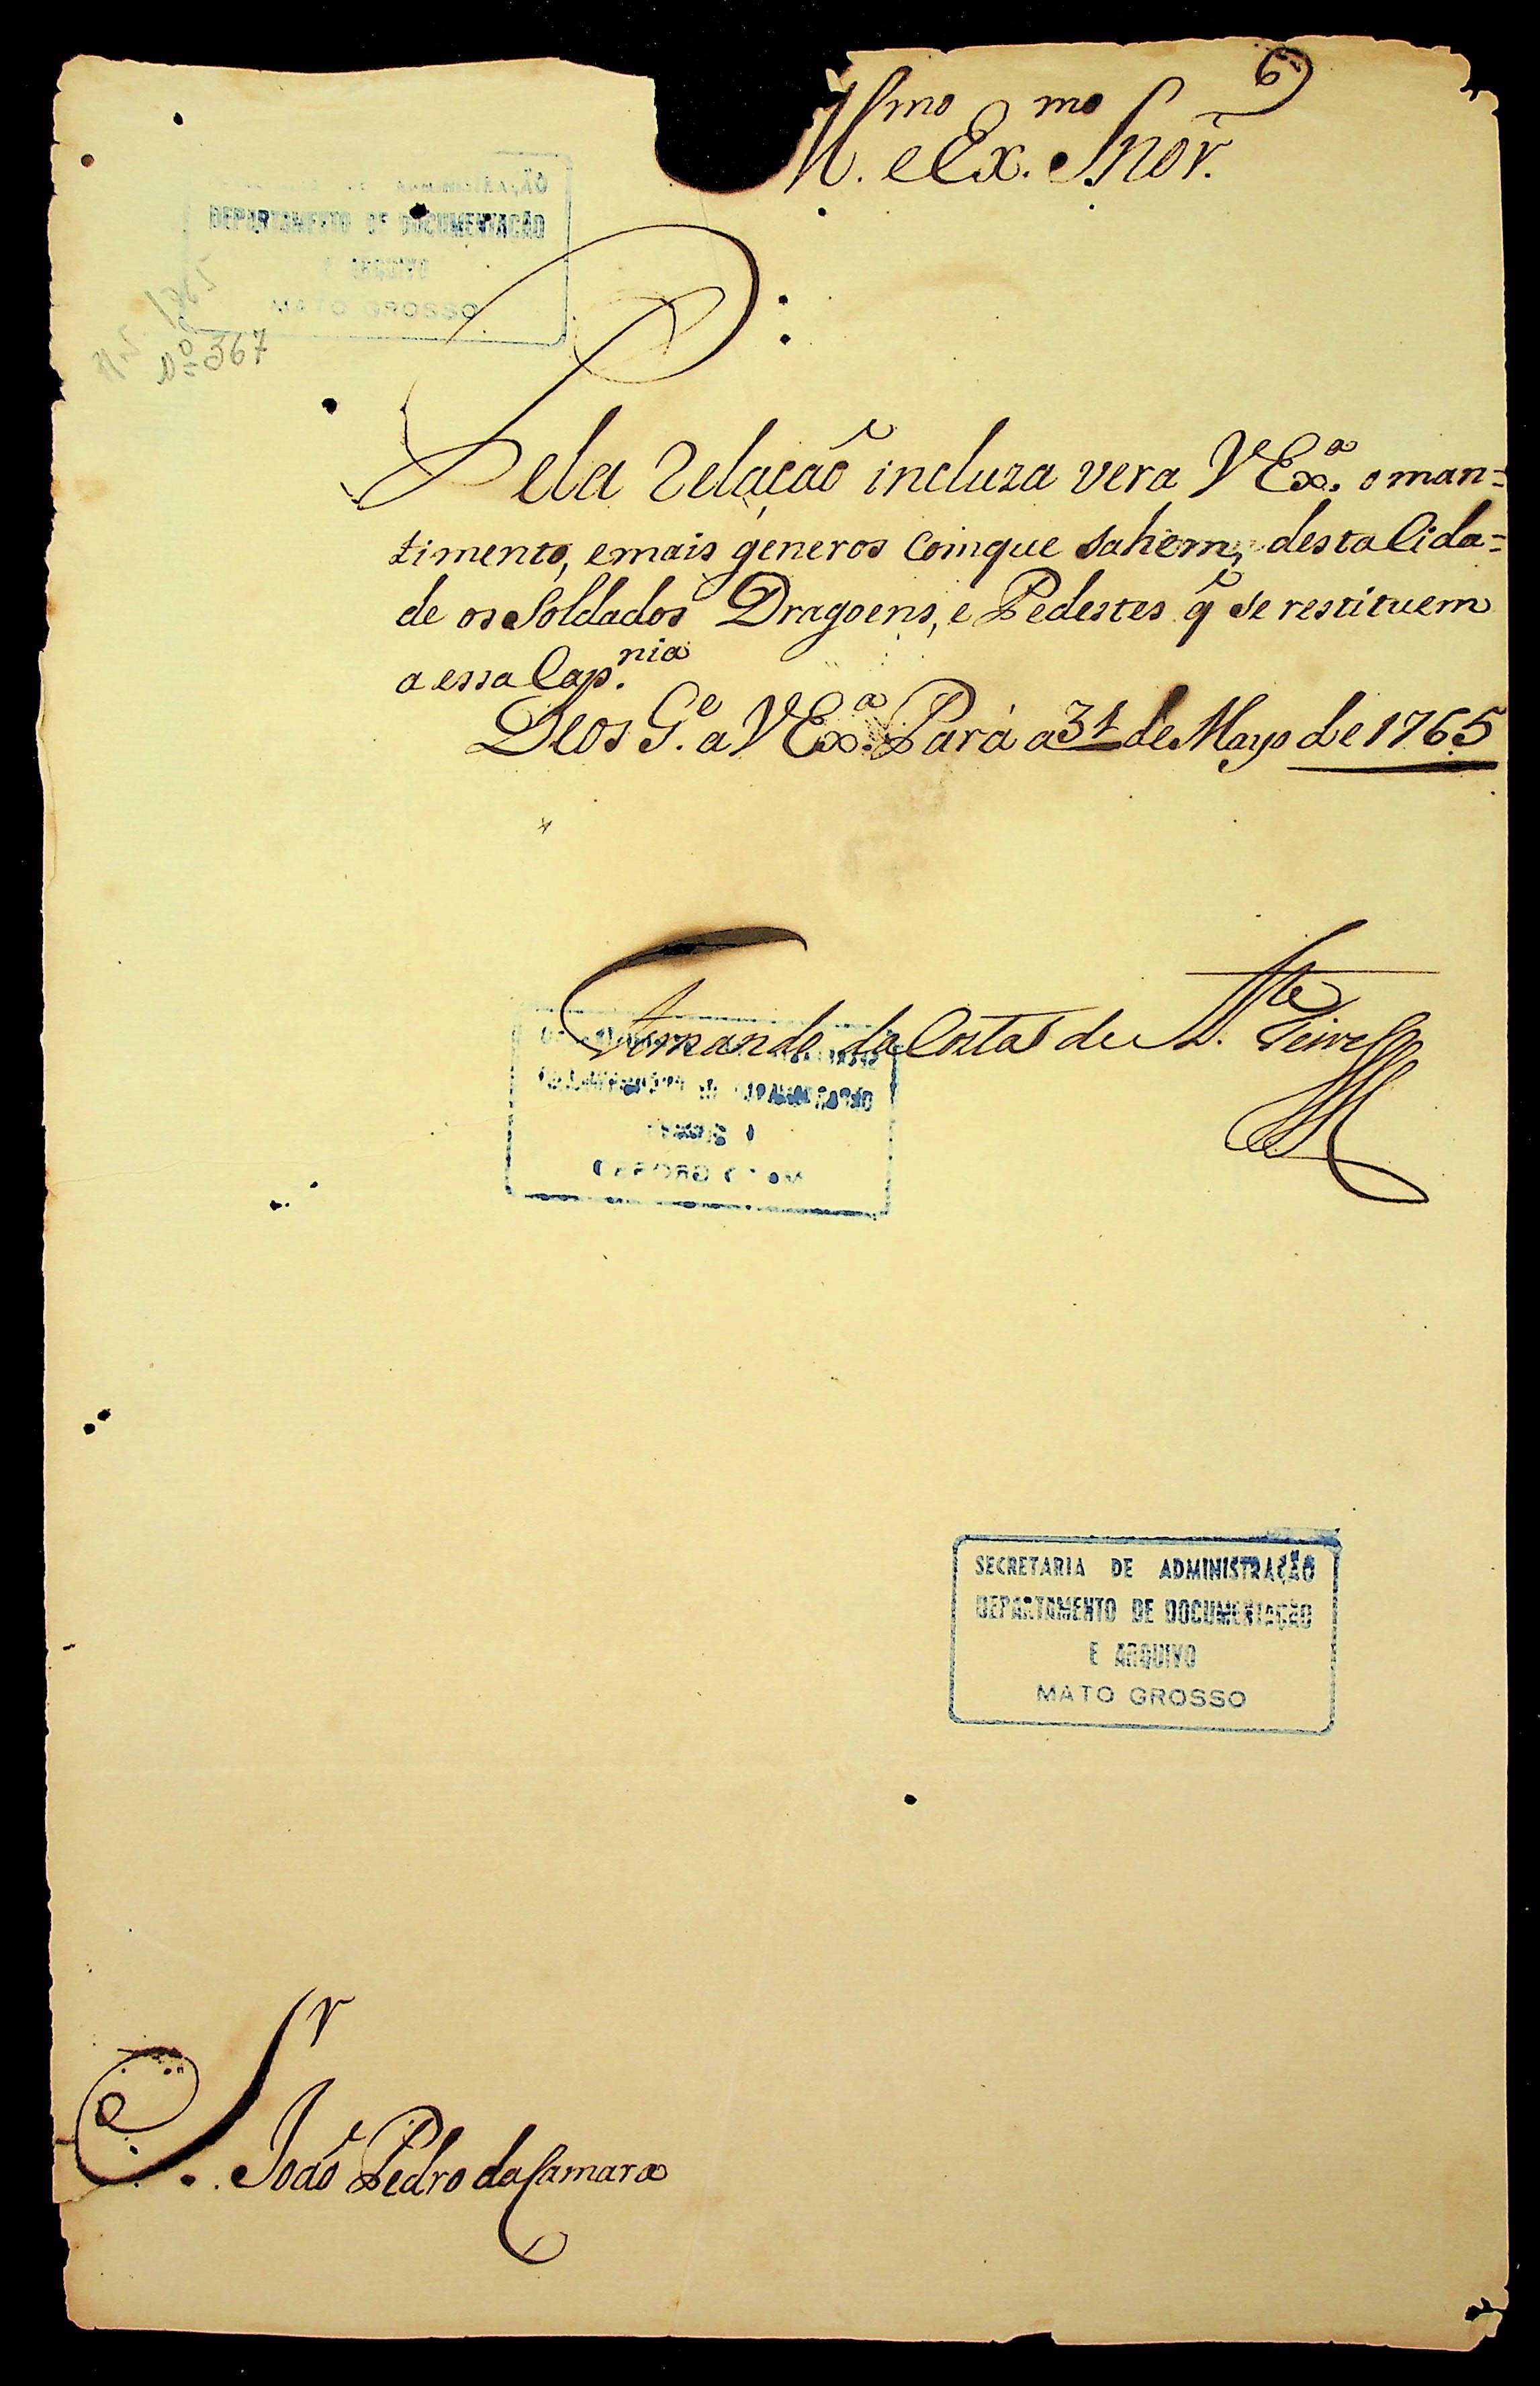 6
Ill.mo e Ex.mo Snor.
DEPARTAMENTO DE DOCUMENTAÇÃO
E ARQUIVO
MATO GROSSO
Nº 367
Pela Relação incluza vera VEx.a o man=
timento, emais generos Comque sahem, desta Cida=
de os Soldados Dragoens, e Pedestes q̃ se restituem
a essa Cap.nia
Deos G.e a VEx.a Pará a 31 de Mayo de 1765
Fernando da Costa de At.e Teive
SECRETARIA DE ADMINISTRAÇÃO
DEPARTAMENTO DE DOCUMENTAÇÃO
E ARQUIVO
MATO GROSSO
Sr.
João Pedro da Camara